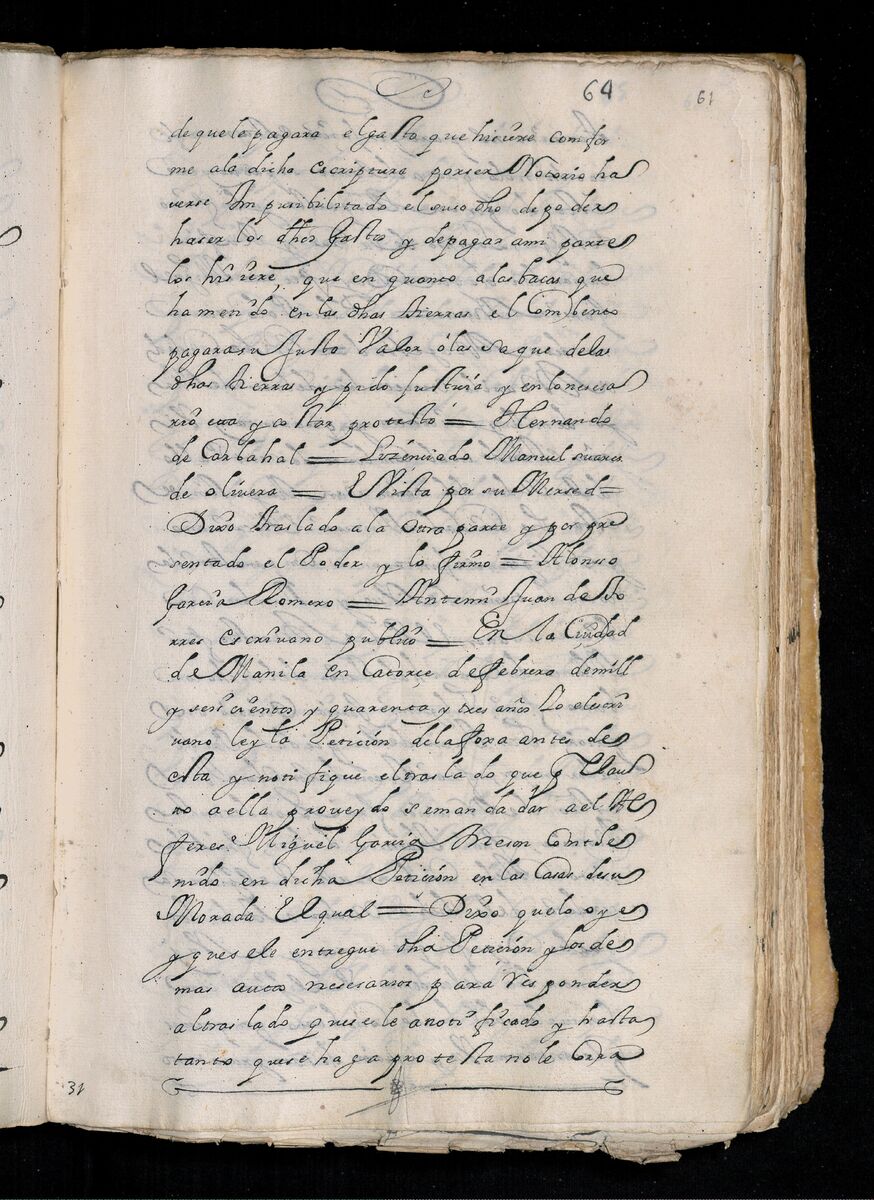 64
61
de que le pagara el gasto que hisiere comfor
me a la dicha escriptura por ser Notorio ha
verse Impusibilitado el suso dho de poder
haser los dhos Gastos y de pagar a mi parte
los hisiere, que en quanto a las bacas que
ha metido en las dhas tierras el Combento
pagara su Justo Valor ó las saque de las
dhas tierras y pido Justicia y en lo nesesa
rio &a y costas protestó = Hernando
de Carbahal = Lizenciado Manuel suares
de olivera = E Vista por su Mersed =
Dixo traslado a la otra parte y por pre
sentado el Poder y lo firmo = Alonso
Garcia Romero = Antemi Juan de To
rres escrivano publico = En la Ciudad
de Manila en Catorçe de febrero de mill
y seiscientos y quarenta y tres años Yo el escri
vano ley la Petición de la foxa antes de
esta y notifique el traslado que por el au
to a ella proveydo se manda dar a el Al
feres Miguel Garcia Breson Conthe
nido en dicha Petición en las Casas de su
Morada El qual = Dixo que lo oye
y que se le entregue dha Petición y los de
mas autos nesesarios para Responder
al traslado que se le a notificado y hasta
tanto que se haga protesta no le Corra
31